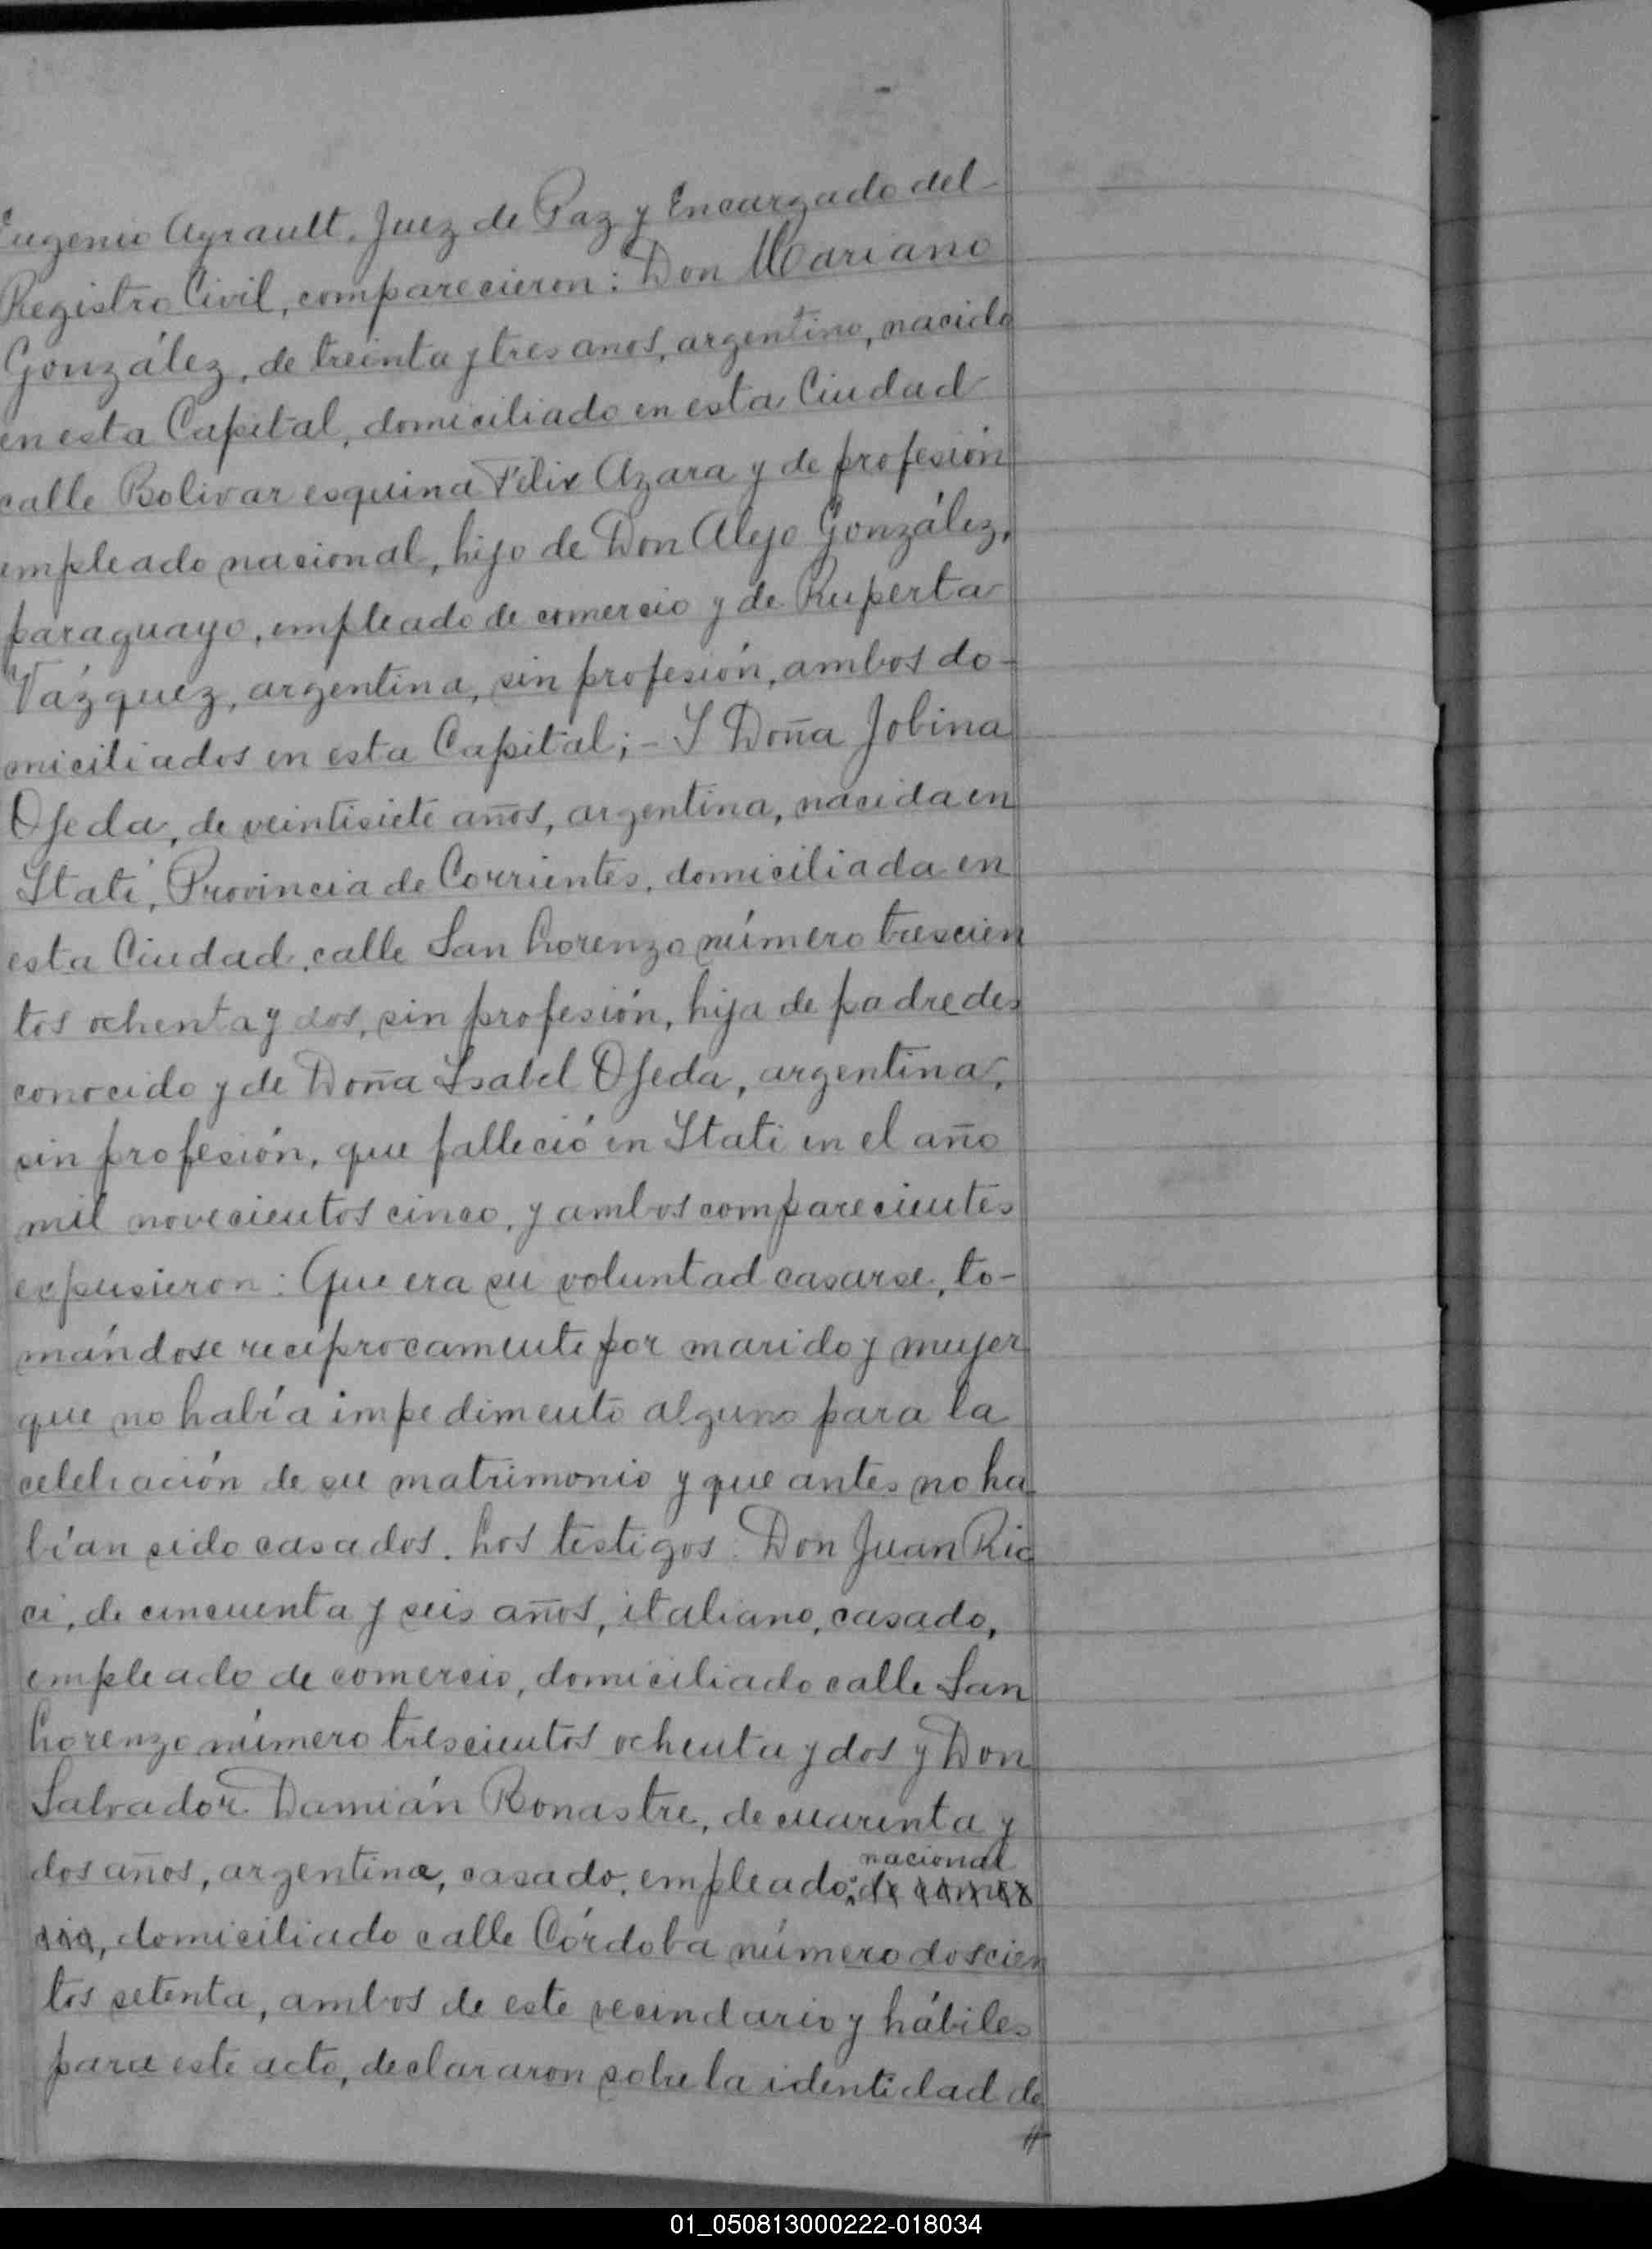 Eugenio Ayrault, Juez de Paz y Encargado del
Registro Civil, comparecieron: Don Mariano
González, de treinta y tres anos, argentino, nacido
en esta Capital, domiciliado en esta Ciudad
calle Bolivar esquina Félix Azara y de profesión
empleado nacional, hijo de Don Alejo González,
paraguayo, empleado de comercio y de Ruperta
Vázquez, argentina, sin profesión, ambos do-
miciliados en esta Capital; - Y Doña Jobina
Ojeda, de veintisiete años, argentina, nacida en
Itatí, Provincia de Corrientes, domiciliada en
esta Ciudad, calle San Lorenzo número trescien
tos ochenta y dos, sin profesión, hija de padre des
conocido y de Doña Isabel Ojeda, argentina,
sin profesión, que falleció en Itati en el año
mil novecientos cinco, y ambos comparecientes
expusieron: Que era su voluntad casarse, to-
mándose recíprocamente por marido y mujer
que no había impedimento alguno para la
celebración de su matrimonio y que antes no ha
bían sido casados. Los testigos: Don Juan Ric
ci, de cincuenta y seis años, italiano, casado,
empleado de comercio, domiciliado calle San
Lorenzo número trescientos ochenta y dos y Don
Salvador Damián Bonastre, de cuarenta y
dos años, argentino, casado, empleado nacional de comer
cio, domiciliado calle Córdoba número doscien
tos setenta, ambos de este vecindario y hábiles
para este acto, declararon sobre la identidad de
#
01_050813000222-018034